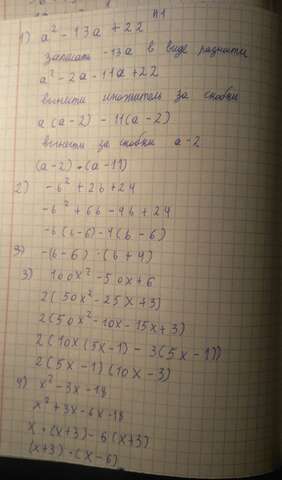 №1
1) a² - 13a + 22
записать -13a в виде разности
a² - 2a - 11a + 22
вынести множитель за скобки
a (a - 2) - 11(a - 2)
вынести за скобки a - 2
(a - 2) · (a - 11)
2) -b² + 2b + 24
-b² + 6b - 4b + 24
-b(b - 6) - 4(b - 6)
3) -(b - 6) · (b + 4)
3) 100x² - 50x + 6
2(50x² - 25x + 3)
2(50x² - 10x - 15x + 3)
2(10x (5x - 1) - 3(5x - 1))
2(5x - 1)(10x - 3)
4) x² - 3x - 18
x² + 3x - 6x - 18
x · (x + 3) - 6(x + 3)
(x + 3) · (x - 6)